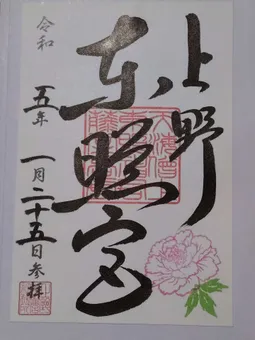 上野
東照宮
令和
五年
一月二十五日参拝